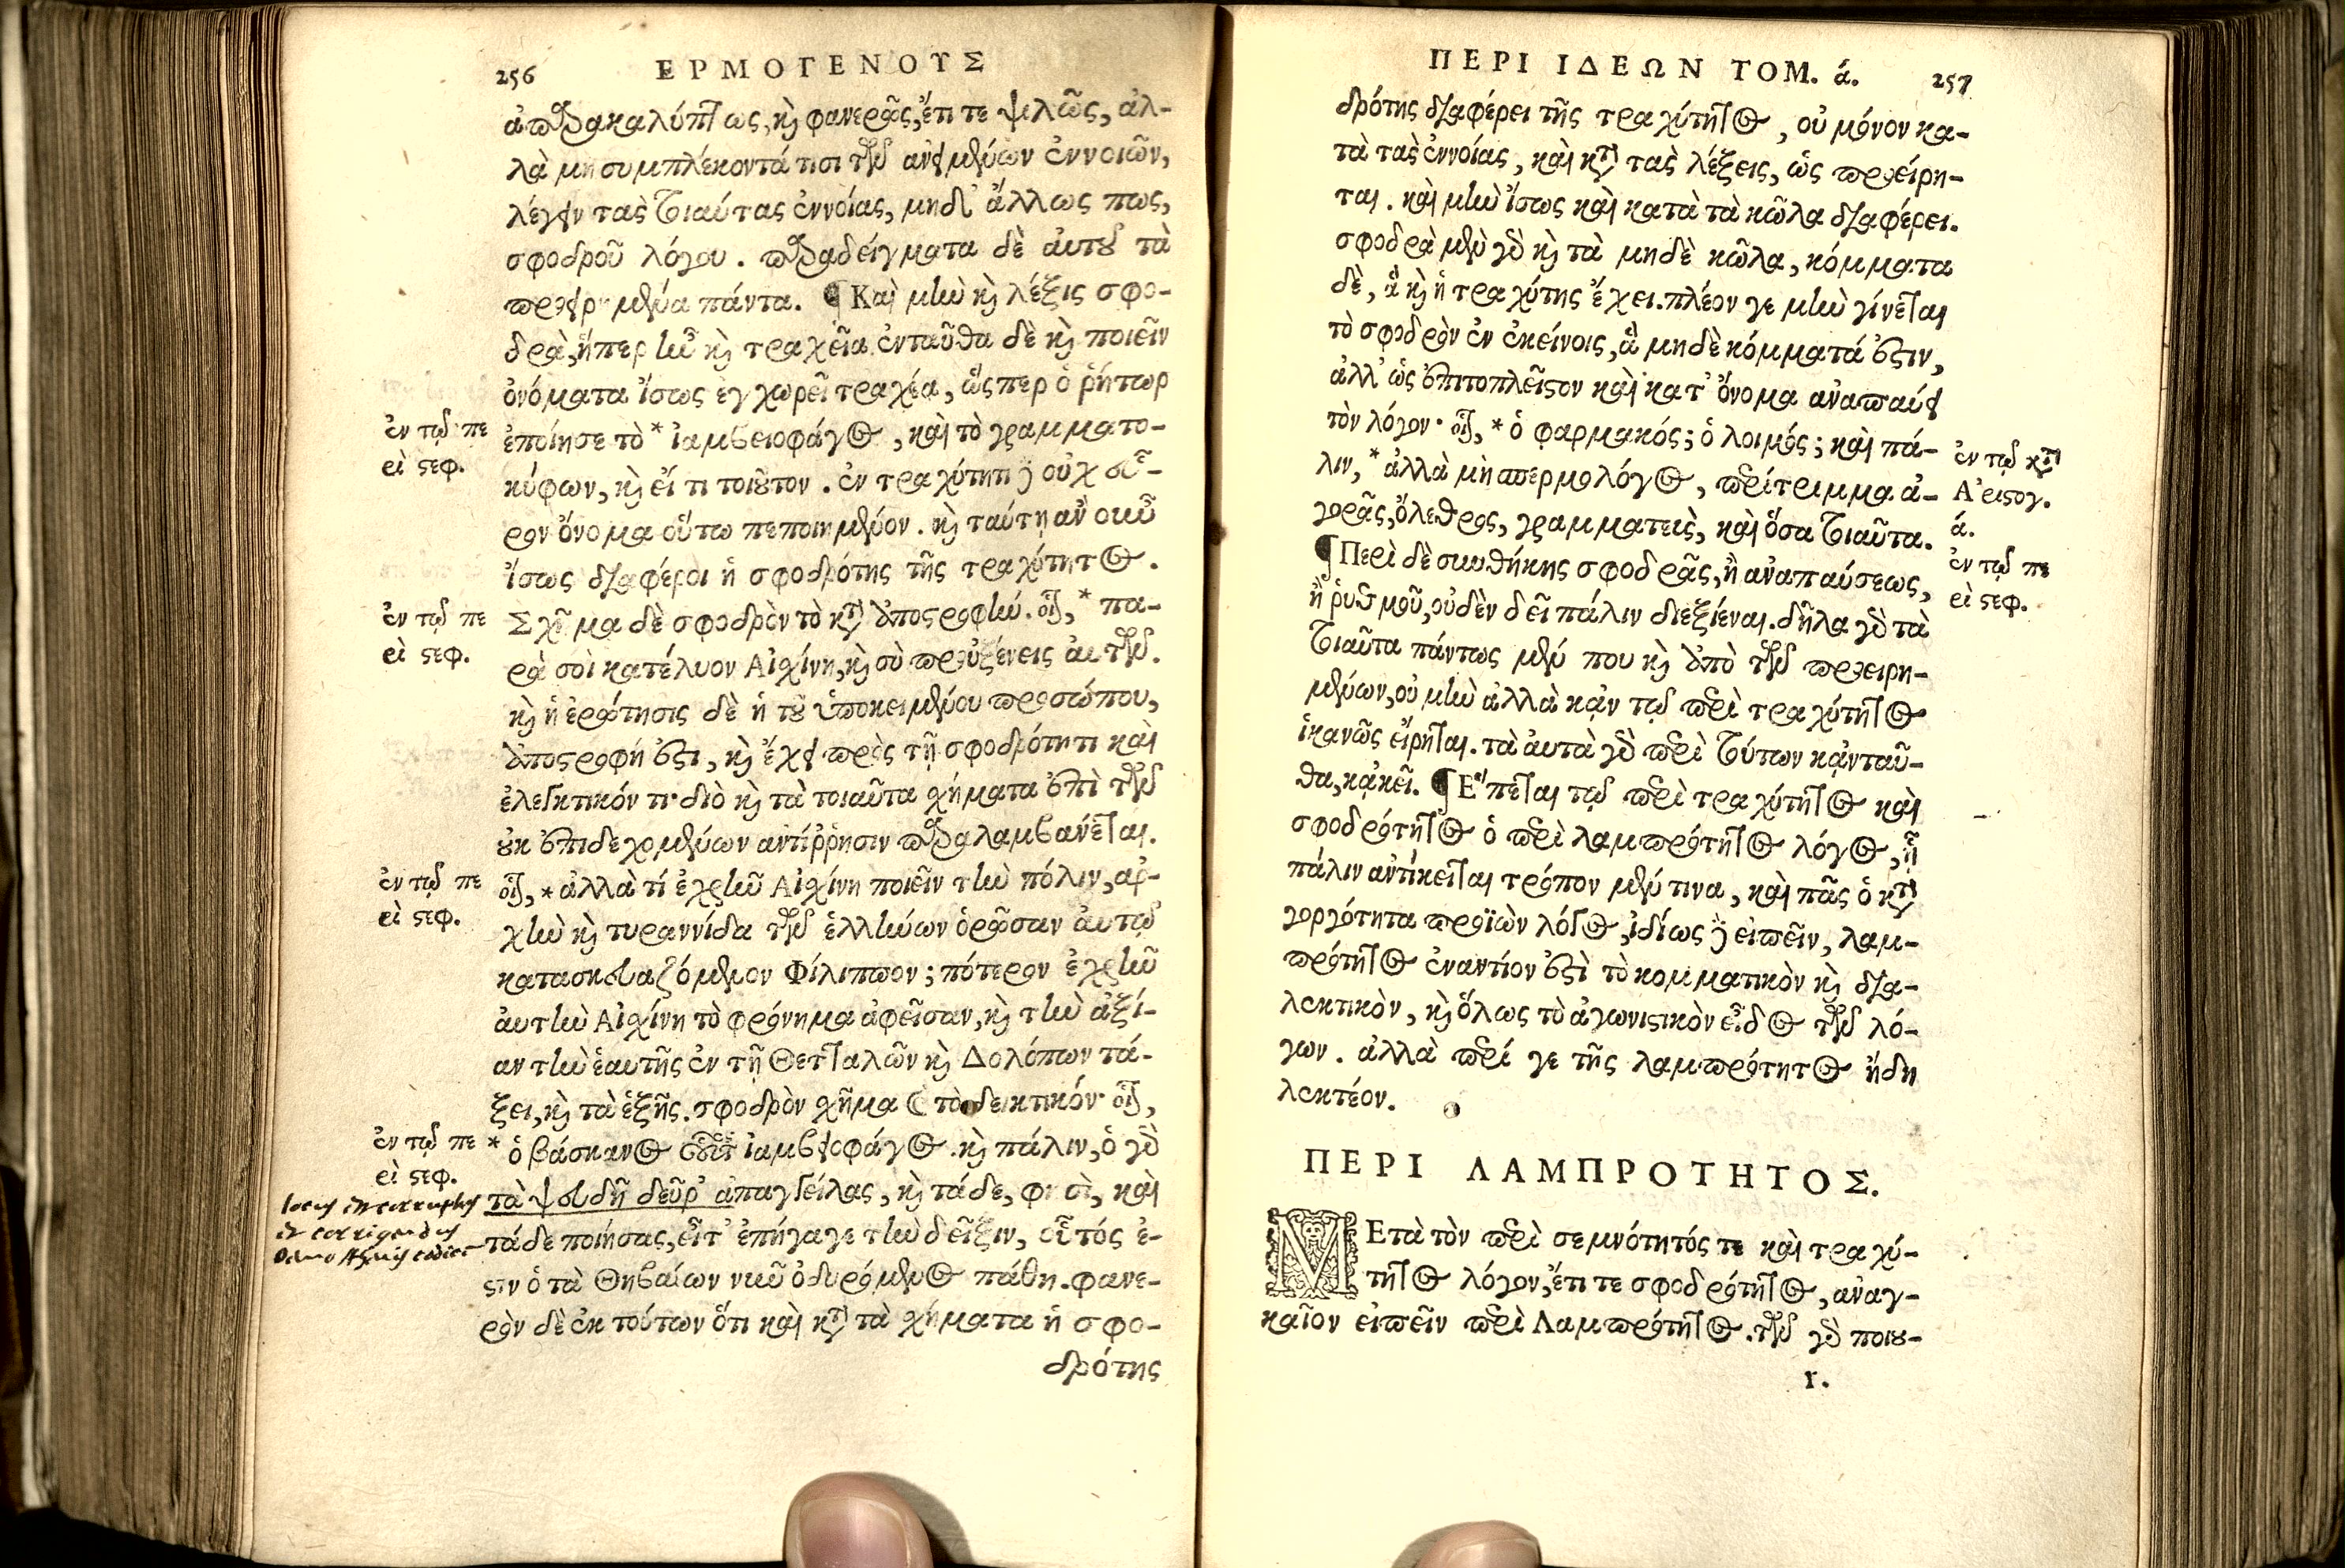 256 ΕΡΜΟΓΕΝΟΥΣ
ἀπαρακαλύπτως, καὶ φανερῶς, ἔτι τε ψιλῶς, ἀλ-
λὰ μὴ συμπλέκοντά τισι τῶν ἀνειμένων ἐννοιῶν,
λέγειν τὰς τοιαύτας ἐννοίας, μηδ' ἄλλως πως,
σφοδροῦ λόγου. παραδείγματα δὲ αὐτοῦ τὰ
προειρημένα πάντα. ¶ Καὶ μὴν καὶ λέξις σφο-
δρὰ, ἥπερ ἦν καὶ τραχεῖα. ἐνταῦθα δὲ καὶ ποιεῖν
ὀνόματα ἴσως ἐγχωρεῖ τραχέα, ὥσπερ ὁ ῥήτωρ
ἐποίησε τὸ * ἰαμβειοφάγος, καὶ τὸ γραμματο-
κύφων, καὶ εἴ τι τοιοῦτον. ἐν τραχύτητι δὲ οὐχ εὗ-
ρον ὄνομα οὕτω πεποιημένον. καὶ ταύτῃ ἂν οὖν
ἴσως διαφέροι ἡ σφοδρότης τῆς τραχύτητος.
Σχῆμα δὲ σφοδρὸν τὸ κατὰ ἀποστροφήν. οἷον, * πα-
ρὰ σοὶ κατέλυον Αἰσχίνη, καὶ σὺ προὐξένεις αὐτῶν.
καὶ ἡ ἐρώτησις δὲ ἡ τοῦ ὑποκειμένου προσώπου,
ἀποστροφή ἐστι, καὶ ἔχει πρὸς τῇ σφοδρότητι καὶ
ἐλεγκτικόν τι· διὸ καὶ τὰ τοιαῦτα σχήματα ἐπὶ τῶν
οὐκ ἐπιδεχομένων ἀντίῤῥησιν παραλαμβάνεται.
οἷον, * ἀλλὰ τί ἐχρῆν Αἰσχίνη ποιεῖν τὴν πόλιν, ἀρ-
χὴν καὶ τυραννίδα τῶν ἑλλήνων ὁρῶσαν αὑτῷ
κατασκευαζόμενον Φίλιππον; πότερον ἐχρῆν
αὐτὴν Αἰσχίνη τὸ φρόνημα ἀφεῖσαν, καὶ τὴν ἀξί-
αν τὴν ἑαυτῆς ἐν τῇ Θετταλῶν καὶ Δολόπων τά-
ξει, καὶ τὰ ἑξῆς. σφοδρὸν σχῆμα καὶ τὸ δεικτικόν· οἷον,
* ὁ βάσκανος οὗτος ἰαμβειοφάγος. καὶ πάλιν, ὁ γὰρ
τὰ ψευδῆ δεῦρ' ἀπαγγείλας, καὶ τάδε, φησὶ, καὶ
τάδε ποιήσας, εἶτ' ἐπήγαγε τὴν δεῖξιν, οὗτός ἐ-
στιν ὁ τὰ Θηβαίων νῦν ὀδυρόμενος πάθη. φανε-
ρὸν δὲ ἐκ τούτων ὅτι καὶ κατὰ τὰ σχήματα ἡ σφο-
δρότης
ἐν τῷ πε
ρὶ στεφ.
ἐν τῷ πε
ρὶ στεφ.
ἐν τῷ πε
ρὶ στεφ.
ἐν τῷ πε
ρὶ στεφ.
locus est corruptus
ΠΕΡΙ ΙΔΕΩΝ ΤΟΜ. ά. 257
δρότης διαφέρει τῆς τραχύτητος, οὐ μόνον κα-
τὰ τὰς ἐννοίας, καὶ κατὰ τὰς λέξεις, ὡς προείρη-
ται. καὶ μὴν ἴσως καὶ κατὰ τὰ κῶλα διαφέρει.
σφοδρὰ μὲν γὰρ καὶ τὰ μηδὲ κῶλα, κόμματα
δὲ, ἃ καὶ ἡ τραχύτης ἔχει. πλέον γε μὴν γίνεται
τὸ σφοδρὸν ἐν ἐκείνοις, ἃ μηδὲ κόμματά ἐστιν,
ἀλλ' ὡς ἐπιτοπλεῖστον καὶ κατ' ὄνομα ἀναπαύει
τὸν λόγον· οἷον, * ὁ φαρμακός; ὁ λοιμός; καὶ πά-
λιν, * ἀλλὰ μὴ σπερμολόγος, περίτριμμα ἀ-
γορᾶς, ὄλεθρος, γραμματεὺς, καὶ ὅσα τοιαῦτα.
¶ Περὶ δὲ συνθήκης σφοδρᾶς, ἢ ἀναπαύσεως,
ἢ ῥυθμοῦ, οὐδὲν δεῖ πάλιν διεξιέναι. δῆλα γὰρ τὰ
τοιαῦτα πάντως μέν που καὶ ἀπὸ τῶν προειρη-
μένων, οὐ μὴν ἀλλὰ κἀν τῷ περὶ τραχύτητος
ἱκανῶς εἴρηται. τὰ αὐτὰ γὰρ περὶ τούτων κἀνταῦ-
θα, κἀκεῖ. ¶ Ἕπεται τῷ περὶ τραχύτητος καὶ
σφοδρότητος ὁ περὶ λαμπρότητος λόγος, ᾗ
πάλιν ἀντίκειται τρόπον μέν τινα, καὶ πᾶς ὁ κατὰ
γοργότητα προϊὼν λόγος, ἰδίως δὲ εἰπεῖν, λαμ-
πρότητος ἐναντίον ἐστὶ τὸ κομματικὸν καὶ δια-
λεκτικὸν, καὶ ὅλως τὸ ἀγωνιστικὸν εἶδος τῶν λό-
γων. ἀλλὰ περί γε τῆς λαμπρότητος ἤδη
λεκτέον.
ἐν τῷ κατὰ
Ἀριστογ.
ά.
ἐν τῷ πε
ρὶ στεφ.
ΠΕΡΙ ΛΑΜΠΡΟΤΗΤΟΣ.
ΜΕτὰ τὸν περὶ σεμνότητός τε καὶ τραχύ-
τητος λόγον, ἔτι τε σφοδρότητος, ἀναγ-
καῖον εἰπεῖν περὶ Λαμπρότητος. τῶν γὰρ ποιου-
r.